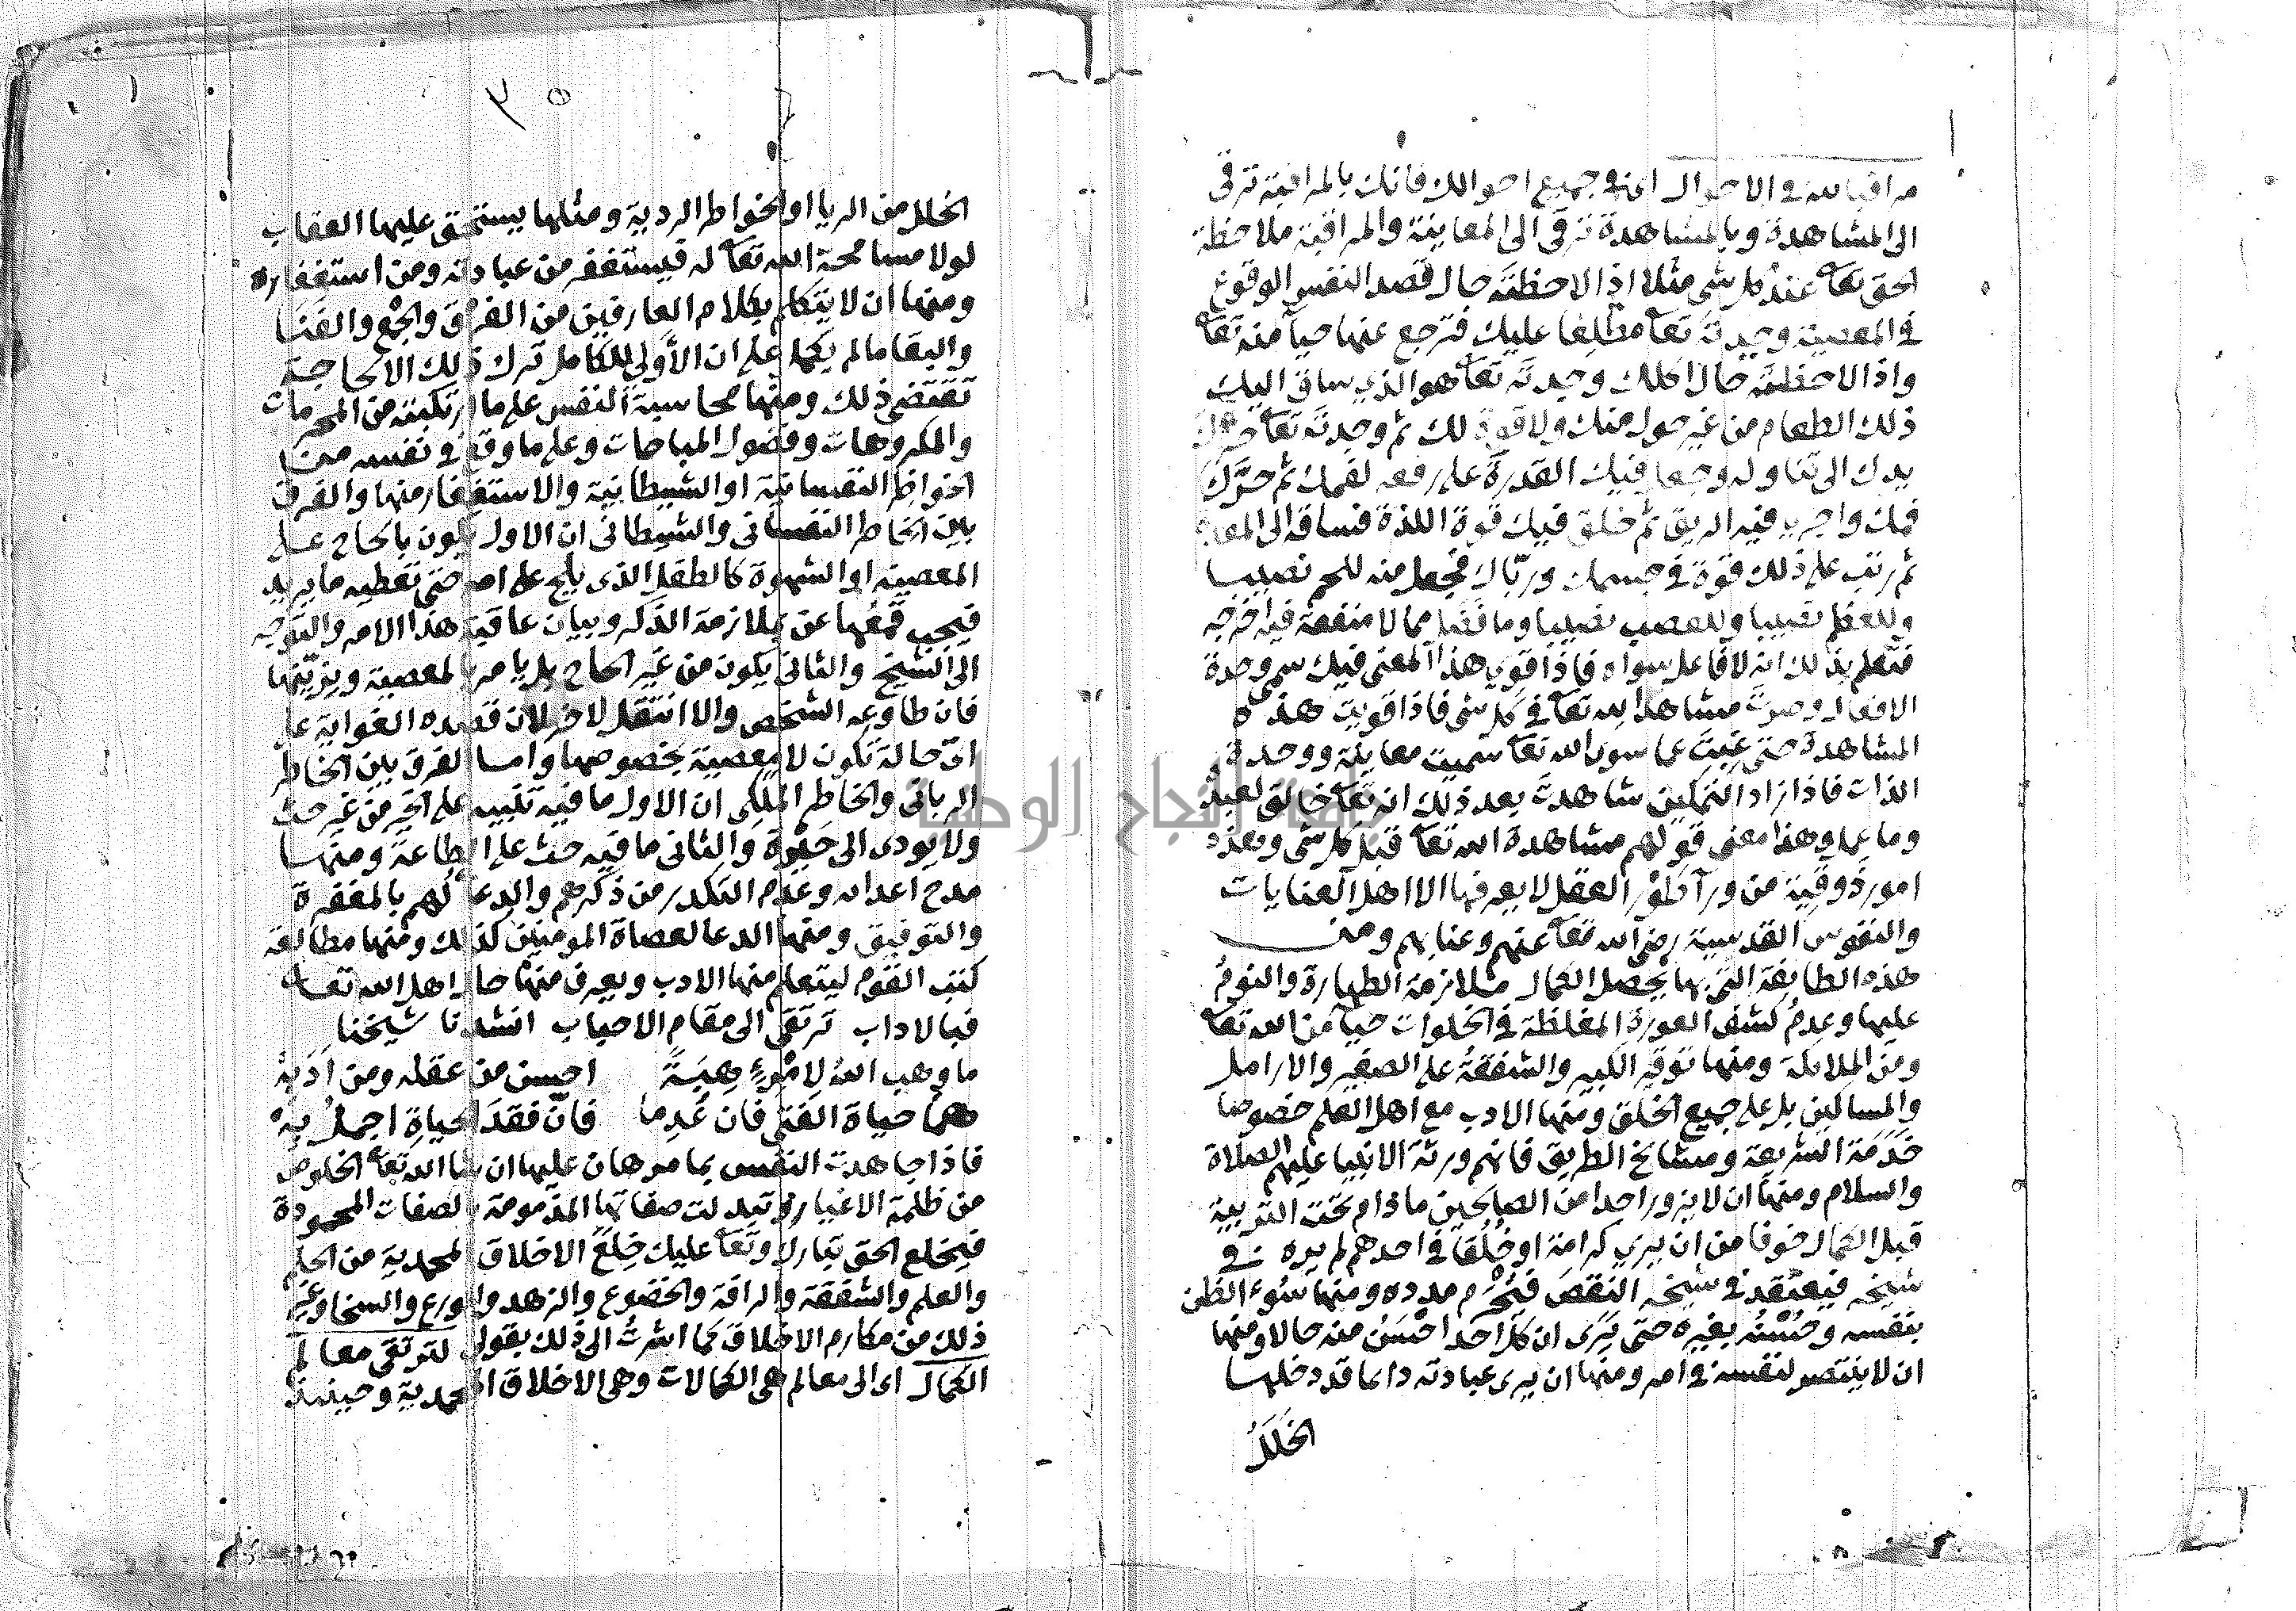 مراقبا لله في الاحوال اي في جميع احوالك فانك بالمراقبة ترقى
الى المشاهدة وبالمشاهدة ترقى الى المعاينة والمراقبة ملاحظة
الحق تعا عند كل شي مثلا اذا لاحظته حال قصد النفس الوقوع
في المعصية وجدته تعا مطلعا عليك فترجع عنها حيآ منه تعا
واذا لاحظته حال اكلك وجدته تعا هو الذي ساق اليك
ذلك الطعام من غير حول منك ولا قوة لك ثم وجدته تعا حرك
يدك الى تناوله وجعل فيك القدرة على رفعه لفمك ثم حرّك
فمك واجرى فيه الريق ثم خلق فيك قوة اللذة فساقه الى المعدة
ثم رتب على ذلك قوة في جسمك وربّاك فجعل منه للحم نصيبا
وللعظم نصيبا وللعصب نصيبا وما فضل مما لا منفعة فيه اخرجه
فتعلم بذلك انه لا فاعل سواه فاذا قوي هذا المعنى فيك سمى وحدة
الافعال وصرت مشاهدا لله تعا في كل شي فاذا قويت هذه
المشاهدة حتى غبت عما سوى الله تعا سميت معاينة ووحدة
الذات فاذا زاد التمكين شاهدت بعد ذلك انه تعا خالق لعبد
وما عمل وهذا معنى قولهم مشاهدة الله تعا قبل كل شي وهذه
امور ذوقية من ورآ طور العقل لا يعرفها الا اهل العنايات
والنفوس القدسية رضي الله تعا عنهم وعنا بهم ومن
هذه الطايفة التي بها يحصل الكمال ملازمة الطهارة والنوم
عليها وعدم كشف العورة المغلظة في الخلوات حيآ من الله تعا
ومن الملائكة ومنها توقير الكبير والشفقة على الصغير والارامل
والمساكين بل على جميع الخلق ومنها الادب مع اهل العلم خصوصا
خَدَمَة الشريعة ومشايخ الطريق فانهم ورثة الانبيا عليهم الصلاة
والسلام ومنها ان لا يزور احدا من الصالحين ما دام تحت التربية
قبل الكمال خوفا من ان يرى كرامة او خُلُقا في احدهم لم يره في
شيخه فيعتقد في شيخه النقص فيُحْرم مدده ومنها سُوء الظن
بنفسه وحُسْنُه بغيره حتى يَرَى ان كل احد احْسَنُ منه حالا ومنها
ان لا ينتصر لنفسه في امر ومنها ان يرى عبادته دائما قد دخلها
الخَلَلُ
٣٥
الخلل من الريا او الخواطر الردية ومثلها يستحق عليها العقاب
لولا مسامحة الله تعا له فيستغفر من عبادته ومن استغفاره
ومنها ان لا يتكلم بكلام العارفين من الفرق والجمع والفنا
والبقا ما لم يكمل على ان الأولى للكامل ترك ذلك الا لحاجة
تقتضي ذلك ومنها محاسبة النفس على ما ارتكبته من المحرمات
والمكروهات وفضول المباحات وعلى ما وقع في نفسه من
الخواطر النفسانية او الشيطانية والاستغفار منها والفرق
بين الخاطر النفساني والشيطاني ان الاول يكون بالحاح على
المعصية او الشهوة كالطفل الذي يلح على امه حتى تعطيه ما يريد
فيجب قمعها عن بملازمة الذكر وبيان عاقبة هذا الامر والتوجه
الى الشيخ والثاني يكون من غير الحاح بل يامر بالمعصية ويزينها
فان طاوعه الشخص والا انتقل لاخر لان قصده الغواية على
اي حالة تكون لا معصية بخصوصها واما الفرق بين الخاطر
الرباني والخاطر الملكي ان الاول ما فيه تنبيه على الخير من غير حث
ولا يودى الى حَيْرة والثاني ما فيه حث على الطاعة ومنها
مدح اعدائه وعدم التكدر من ذكرهم والدعا لهم بالمغفرة
والتوفيق ومنها الدعا لعصاة المومنين كذلك ومنها مطالعة
كتب القوم ليتعلم منها الادب ويعرف منها حال اهل الله تعالى
فبالاداب ترتقي الى مقام الاحباب انشدنا شيخنا
ما وهب اللهُ لامْرِءٍ هِبَةً احسن من عقله ومن اَدَبِهْ
هما حياة الفتى فان عُدِما فانّ فقدَ الحياةِ اجملُ بِهْ
فاذا جاهدت النفس بما مر هان عليها ان شا الله تعا الخلوص
من ظلمة الاغيار وتبدلت صفاتها المذمومة بالصفات المحمودة
فيخلع الحق تبارك وتعا عليك خِلَعَ الاخلاق المحمدية من الحلم
والعلم والشفقة والرافة والخضوع والزهد والورع والسخا وغير
ذلك من مكارم الاخلاق كما اشرتُ الى ذلك بقولي لترتقي معالم
الكمال اي الى معالم هي الكمالات وهي الاخلاق المحمدية وحينئذ